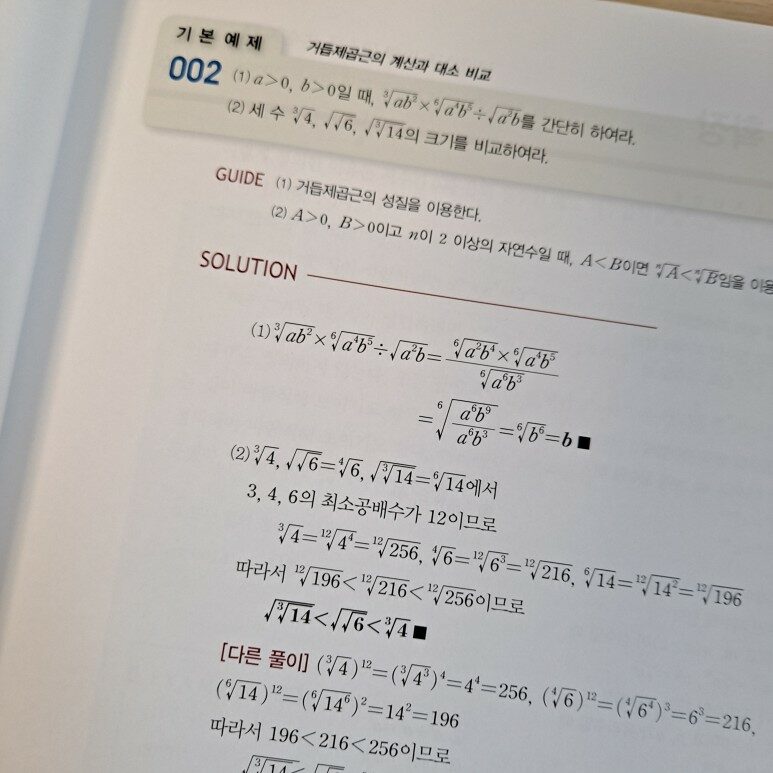 기 본 예 제 거듭제곱근의 계산과 대소 비교
002 (1) a>0, b>0일 때, ∛(ab²)×⁶√(a⁴b⁵)÷√(a²b)를 간단히 하여라.
(2) 세 수 ∛4, √√6, √∛14의 크기를 비교하여라.
GUIDE (1) 거듭제곱근의 성질을 이용한다.
(2) A>0, B>0이고 n이 2 이상의 자연수일 때, A<B이면 ⁿ√A<ⁿ√B임을 이용
SOLUTION
(1) ∛(ab²)×⁶√(a⁴b⁵)÷√(a²b)=(⁶√(a²b⁴)×⁶√(a⁴b⁵))/⁶√(a⁶b³)
=⁶√(a⁶b⁹/a⁶b³)=⁶√(b⁶)=b ■
(2) ∛4, √√6=⁴√6, √∛14=⁶√14에서
3, 4, 6의 최소공배수가 12이므로
∛4=¹²√(4⁴)=¹²√256, ⁴√6=¹²√(6³)=¹²√216, ⁶√14=¹²√(14²)=¹²√196
따라서 ¹²√196<¹²√216<¹²√256이므로
√∛14<√√6<∛4 ■
[다른 풀이] (∛4)¹²=(∛(4³))⁴=4⁴=256, (⁴√6)¹²=(⁴√(6⁴))³=6³=216,
(⁶√14)¹²=(⁶√(14⁶))²=14²=196
따라서 196<216<256이므로
√∛14<